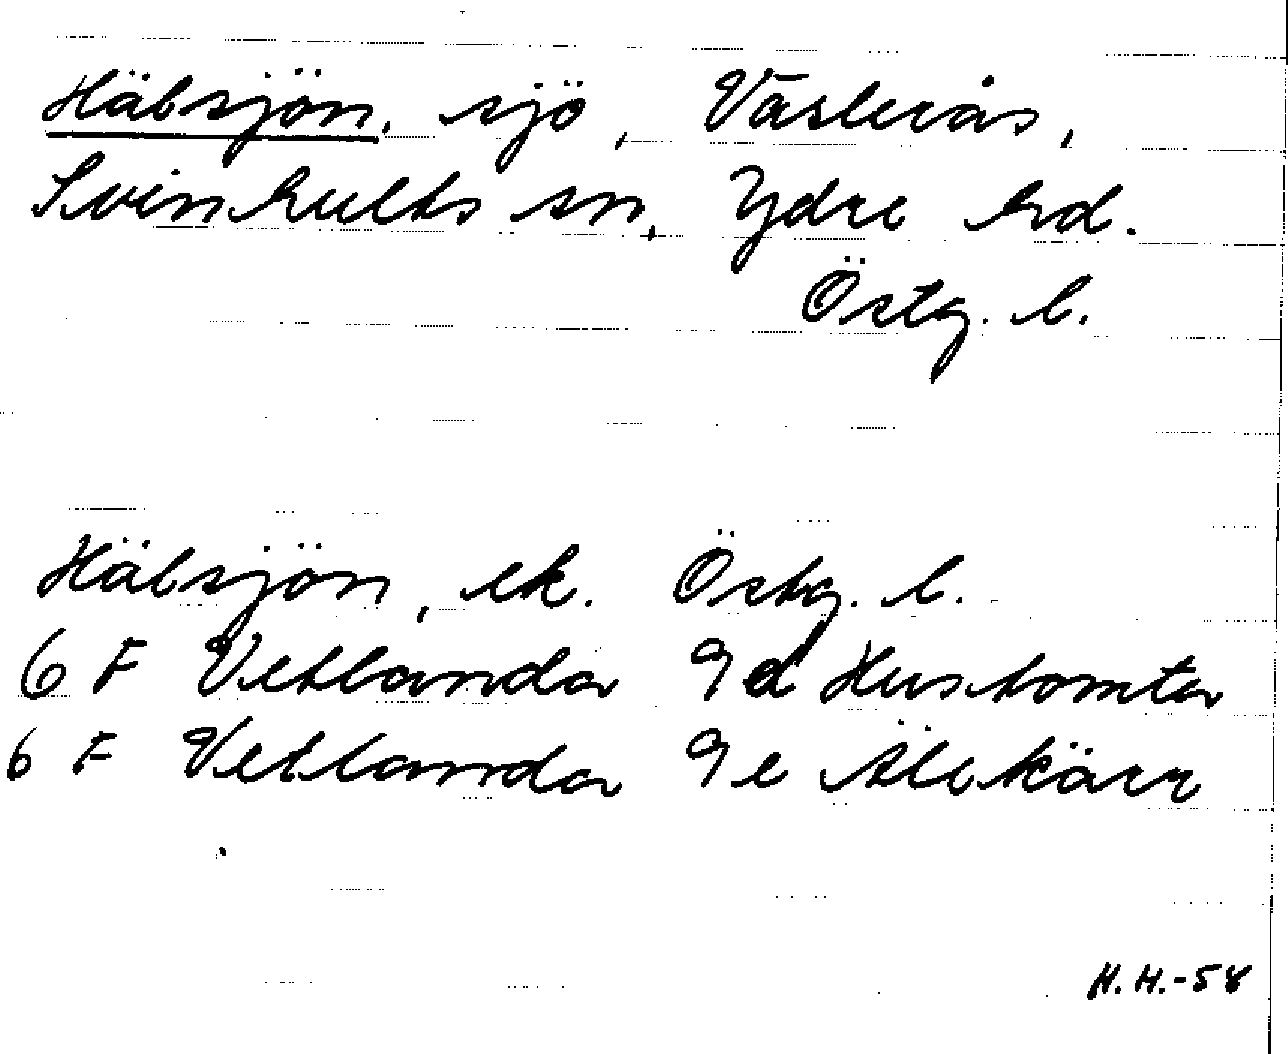 Häbsjön, sjö, Västerås,
Svinhults sn, Ydre hd.
Östg. l.
Häbsjön, ek. Östg. l.
6 F Vetlanda 9 d Hustomta
6 F Vetlanda 9 e Älekärr
H.H.-58